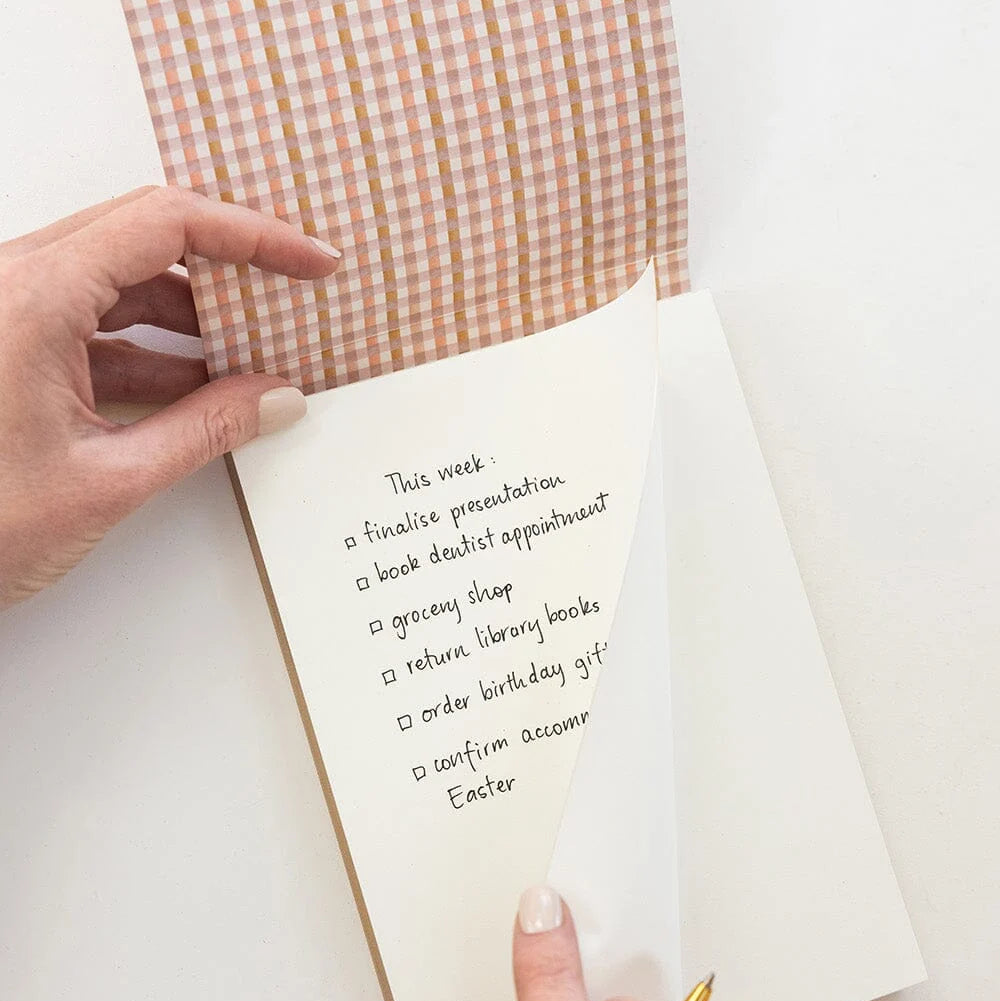 This week:
□ finalise presentation
□ book dentist appointment
□ grocery shop
□ return library books
□ order birthday
□ confirm
Easter